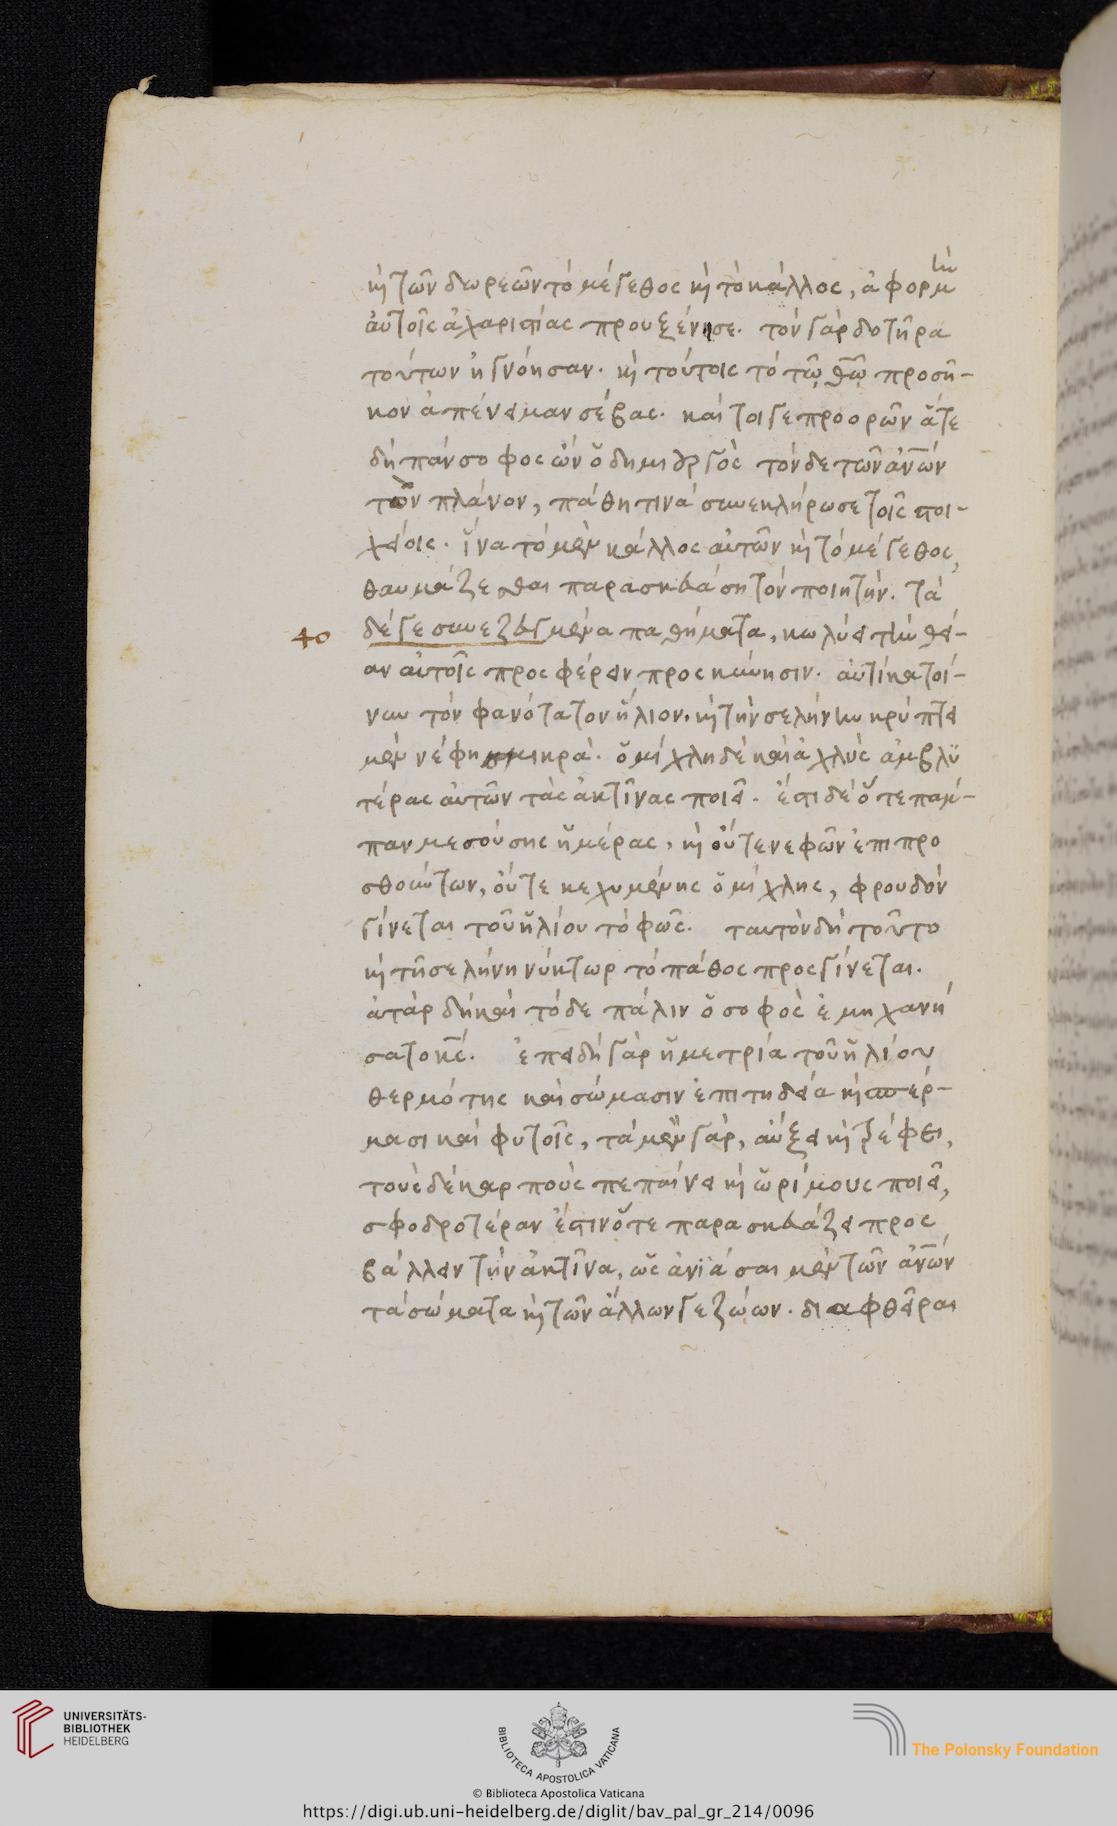 καὶ τῶν δωρεῶν τὸ μέγεθος καὶ τὸ κάλλος, ἀφορμὴν
αὐτοῖς ἀχαριστίας προυξένησε. τὸν γὰρ δοτῆρα
τούτων ἠγνόησαν. καὶ τούτοις τὸ τῷ θῶ προσῆ-
κον ἀπένειμαν σέβας. καί τοι γε προορῶν ἅτε
δὴ πάνσοφος ὢν ὁ δημιουργὸς τόνδε τῶν ἀνων
τὸν πλάνον, πάθη τινὰ συνεκλήρωσε τοῖς στοι-
χείοις. ἵνα τὸ μὲν κάλλος αὐτῶν καὶ τὸ μέγεθος,
θαυμάζεσθαι παρασκευάση τὸν ποιητήν. τὰ
40 δέ γε συνεζευγμένα παθήματα, κωλύει τὴν θεί-
αν αὐτοῖς προσφέρειν προσκύνησιν. αὐτίκα τοί-
νυν τὸν φανότατον ἥλιον. καὶ τὴν σελήνην κρύπτει
μὲν νέφη σμικρά. ὁμίχλη δὲ καὶ ἀχλὺς ἀμβλυ
τέρας αὐτῶν τὰς ἀκτῖνας ποιεῖ. ἔστι δὲ ὅτε παμ-
παν μεσούσης ἡμέρας, καὶ οὔτε νεφῶν ἐπιπρο
σθούντων, οὔτε κεχυμένης ὁμίχλης, φροῦδον
γίνεται τοῦ ἡλίου τὸ φῶς. ταυτὸν δὴ τοῦτο
καὶ τῆ σελήνη νύκτωρ τὸ πάθος προσγίνεται.
ἀτὰρ δὴ καὶ τόδε πάλιν ὁ σοφὸς ἐμηχανή
σατο κς. ἐπειδὴ γὰρ ἡ μετρία τοῦ ἡλίου
θερμότης καὶ σώμασιν ἐπιτηδεία καὶ σπέρ-
μασι καὶ φυτοῖς, τὰ μὲν γὰρ, αὔξει καὶ τρέφει,
τοὺς δὲ καρποὺς πεπαίνει καὶ ὡρίμους ποιεῖ,
σφοδροτέραν ἔστιν ὅτε παρασκευάζει προσ
βάλλειν τὴν ἀκτῖνα, ὡς ἀνιᾶσαι μὲν τῶν ἀνων
τὰ σώματα καὶ τῶν ἄλλων γε ζώων. διαφθεῖραι
UNIVERSITÄTS-
BIBLIOTHEK
HEIDELBERG
BIBLIOTECA APOSTOLICA VATICANA
The Polonsky Foundation
© Biblioteca Apostolica Vaticana
https://digi.ub.uni-heidelberg.de/diglit/bav_pal_gr_214/0096